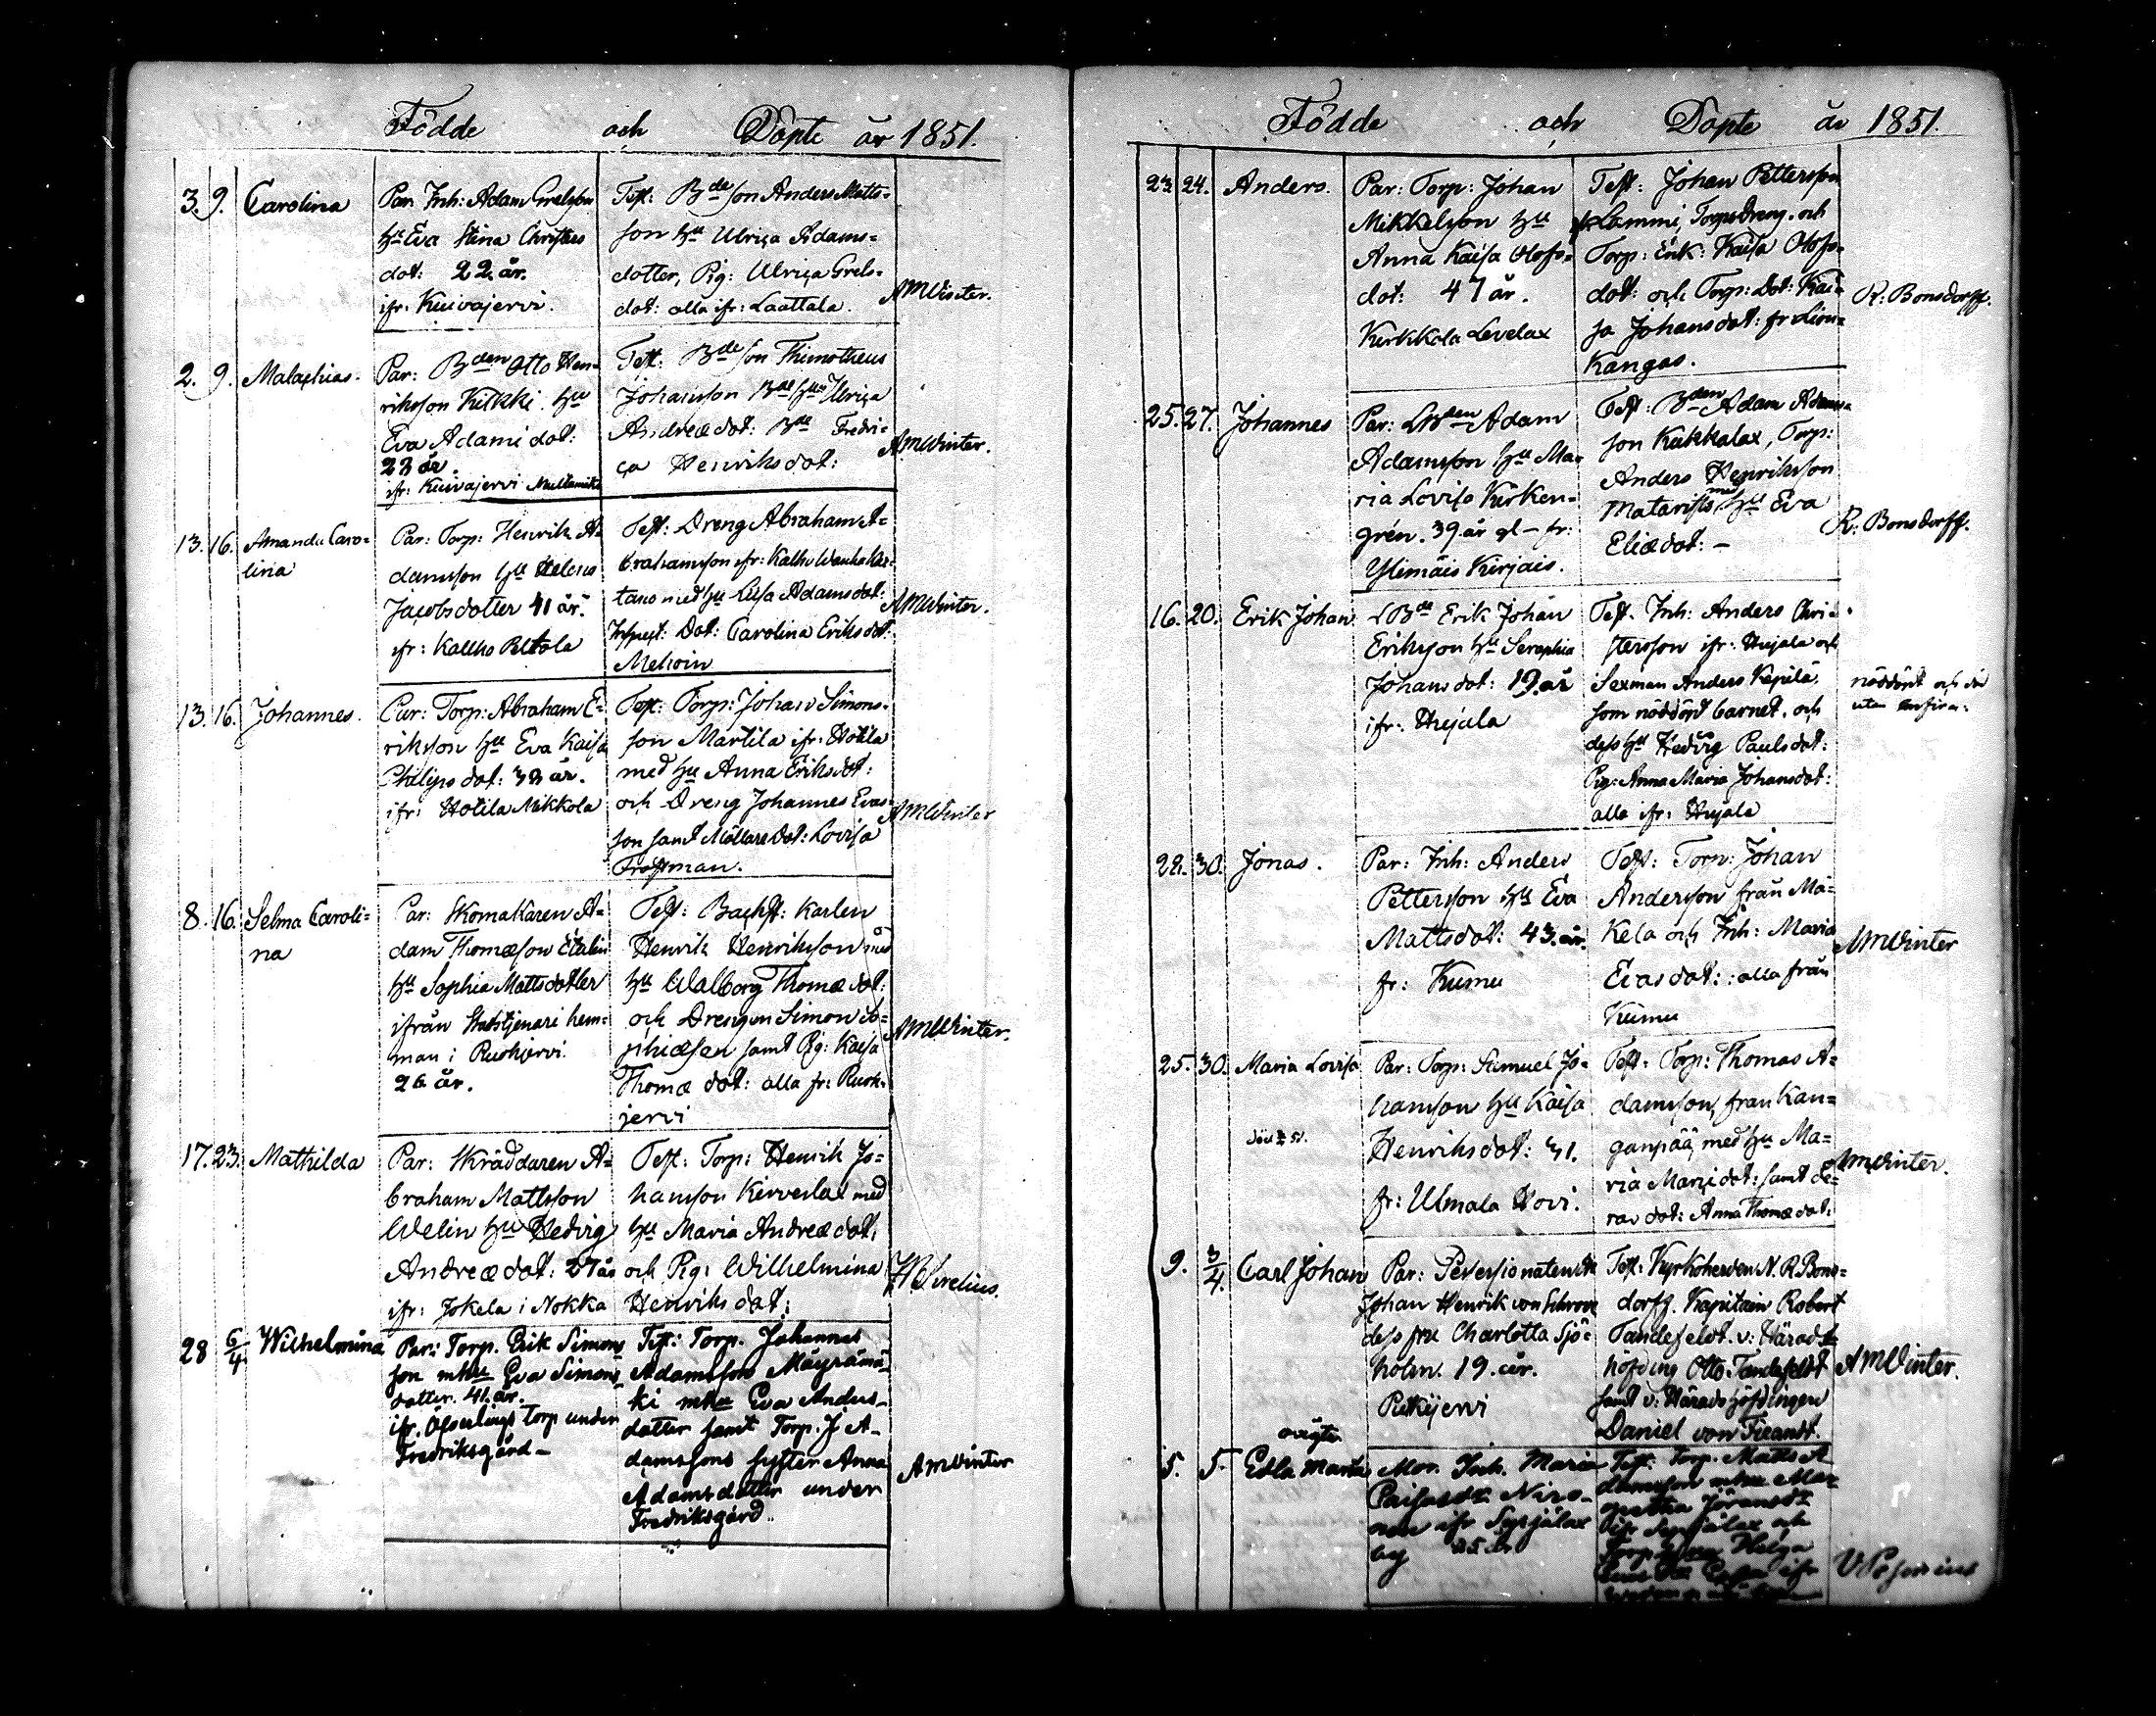 Födde och Döpte år 1851.
3. 9. Carolina
Par. Inh: Adam Grelsson
hu Eva Stina Christers
dot: 22 år.
ifr: Kuivajervi.
Test: Bde son Anders Matts-
son hu Ulrica Adams-
dotter, Pig: Ulrica Grels-
dot: alla ifr: Laattala.
AMWinter.
2. 9. Malachias.
Par: Bden Otto Hen-
riksson Kitkki hu
Eva Adami dot:
23 år.
ifr: Kuivajervi
Test: Bde son Thimotheus
Johansson Bde hu Ulrica
Andreæ dot: Fredri-
ca Henriksdot:
AMWinter.
13. 16. Amanda Caro-
lina
Par: Torp: Henrik A-
damsson hu Helena
Jacobsdotter 41 år.
ifr: Kallho Peltola
Test: Dreng Abraham A-
brahamsson ifr: Kallho
med hu Lisa Adamsdot:
Dot: Carolina Eriksdot:
Mehoin
AMWinter.
13. 16. Johannes.
Par: Torp: Abraham E-
riksson hu Eva Kaisa
Philips dot: 38 år.
ifr: Hotila Mikkola
Test: Torp: Johan Simons-
son Martila ifr: Hotila
med hu Anna Eriksdot:
och Dreng Johannes Evas-
son samt Möllare dot: Lovisa
Trostman.
AMWinter
8. 16. Selma Caroli-
na
Par: Skomakaren A-
dam Thomæson
hu Sophia Mattsdotter
ifrån hem-
man i Ruohjervi.
26 år.
Test: Backst: Karlen
Henrik Henriksson med
hu Walborg Thomæ dot:
och Drengen Simon
samt Pig: Kaisa
Thomæ dot: alla fr: Ruoh-
jervi
AMWinter.
17. 23. Mathilda
Par: Skräddaren A-
braham Mattsson
Welin hu Hedvig
Andreæ dot: 27 år
ifr: Jokela i Nokka
Test: Torp: Henrik Jo-
hansson Kirvelax med
hu Maria Andreæ dot:
och Pig: Wilhelmina
Henriks dot:
28 6/4 Wilhelmina
Par: Torp. Erik Simons
son mhu Eva Simons
dotter. 41 år.
ifr. Torp under
Fredriksgård –
Test: Torp. Johannes
Adamsson Mäyrämä-
ki mhu Eva Anders-
dotter samt Torp. J A-
damssons syster Anna
Adamsdotter under
Fredriksgård.
AMWinter
Födde och Döpte år 1851.
23. 24. Anders.
Par: Torp: Johan
Mikkelson hu
Anna Kaisa Olofs-
dot: 47 år.
Kirkkola Levelax
Test: Johan Pettersson
Lammi, Torpedreng. och
Torp: Enk: Kaisa Olofs-
dot: och Torp: Dot: Kai-
sa Johansdot: fr Lion-
Kangas.
R: Bonsdorff.
25. 27. Johannes
Par: LBden Adam
Adamsson hu Ma-
ria Lovisa Kirken-
grén. 39 år gl – fr:
Ylimäis Kirjais.
Test: Bden Adam Adams-
son Kukkalax, Torp:
Anders Henriksson
med hu Eva
Eliæ dot: –
R: Bonsdorff.
16. 20. Erik Johan
LBde Erik Johan
Eriksson hu Seraphia
Johansdot: 19 år
ifr: Hujala
Test. Inh: Anders Chri-
stersson ifr: Hujala och
Sexman Anders Kepilä,
som nöddöpt barnet. och
dess hu Hedvig Paulsdot:
Pig: Anna Maria Johansdot:
alla ifr: Hujala
nöddöpt och död
utan
28. 30. Jonas.
Par: Inh: Anders
Pettersson hu Eva
Mattsdot: 43 år.
fr: Kumu
Test: Torp: Johan
Andersson från Mä-
kela och Inh: Maria
Evas dot: alla från
Kumu
AMWinter
25. 30. Maria Lovisa
Par: Torp: Samuel Jo-
hansson hu Kaisa
Henriksdot: 31.
fr: Ulmala Hovi.
Test: Torp: Thomas A-
damsson, från Kan-
ganpää, med hu Ma-
ria dot: samt
dot: Anna Thomæ dot:
AMWinter.
9. 3/4. Carl Johan
Par:
Johan Henrik von Schrove
dess fru Charlotta Sjö-
holm. 19. år.
Pitkijervi
Test: Kyrkoherden N. R Bons-
dorff. Kapitain Robert
Tandefeldt. v: Härads-
höfding Otto Tandefeldt
samt v: Häradshöfdingen
Daniel von Fieandt.
AMWinter.
5. 5. oägta
Edla Maria
Mor. Inh. Maria
ifr Sysjälax
by 25 år
Test: Torp. Matts A
damsson mhu Mar-
ifr Sysjälax och
Torp. Helga